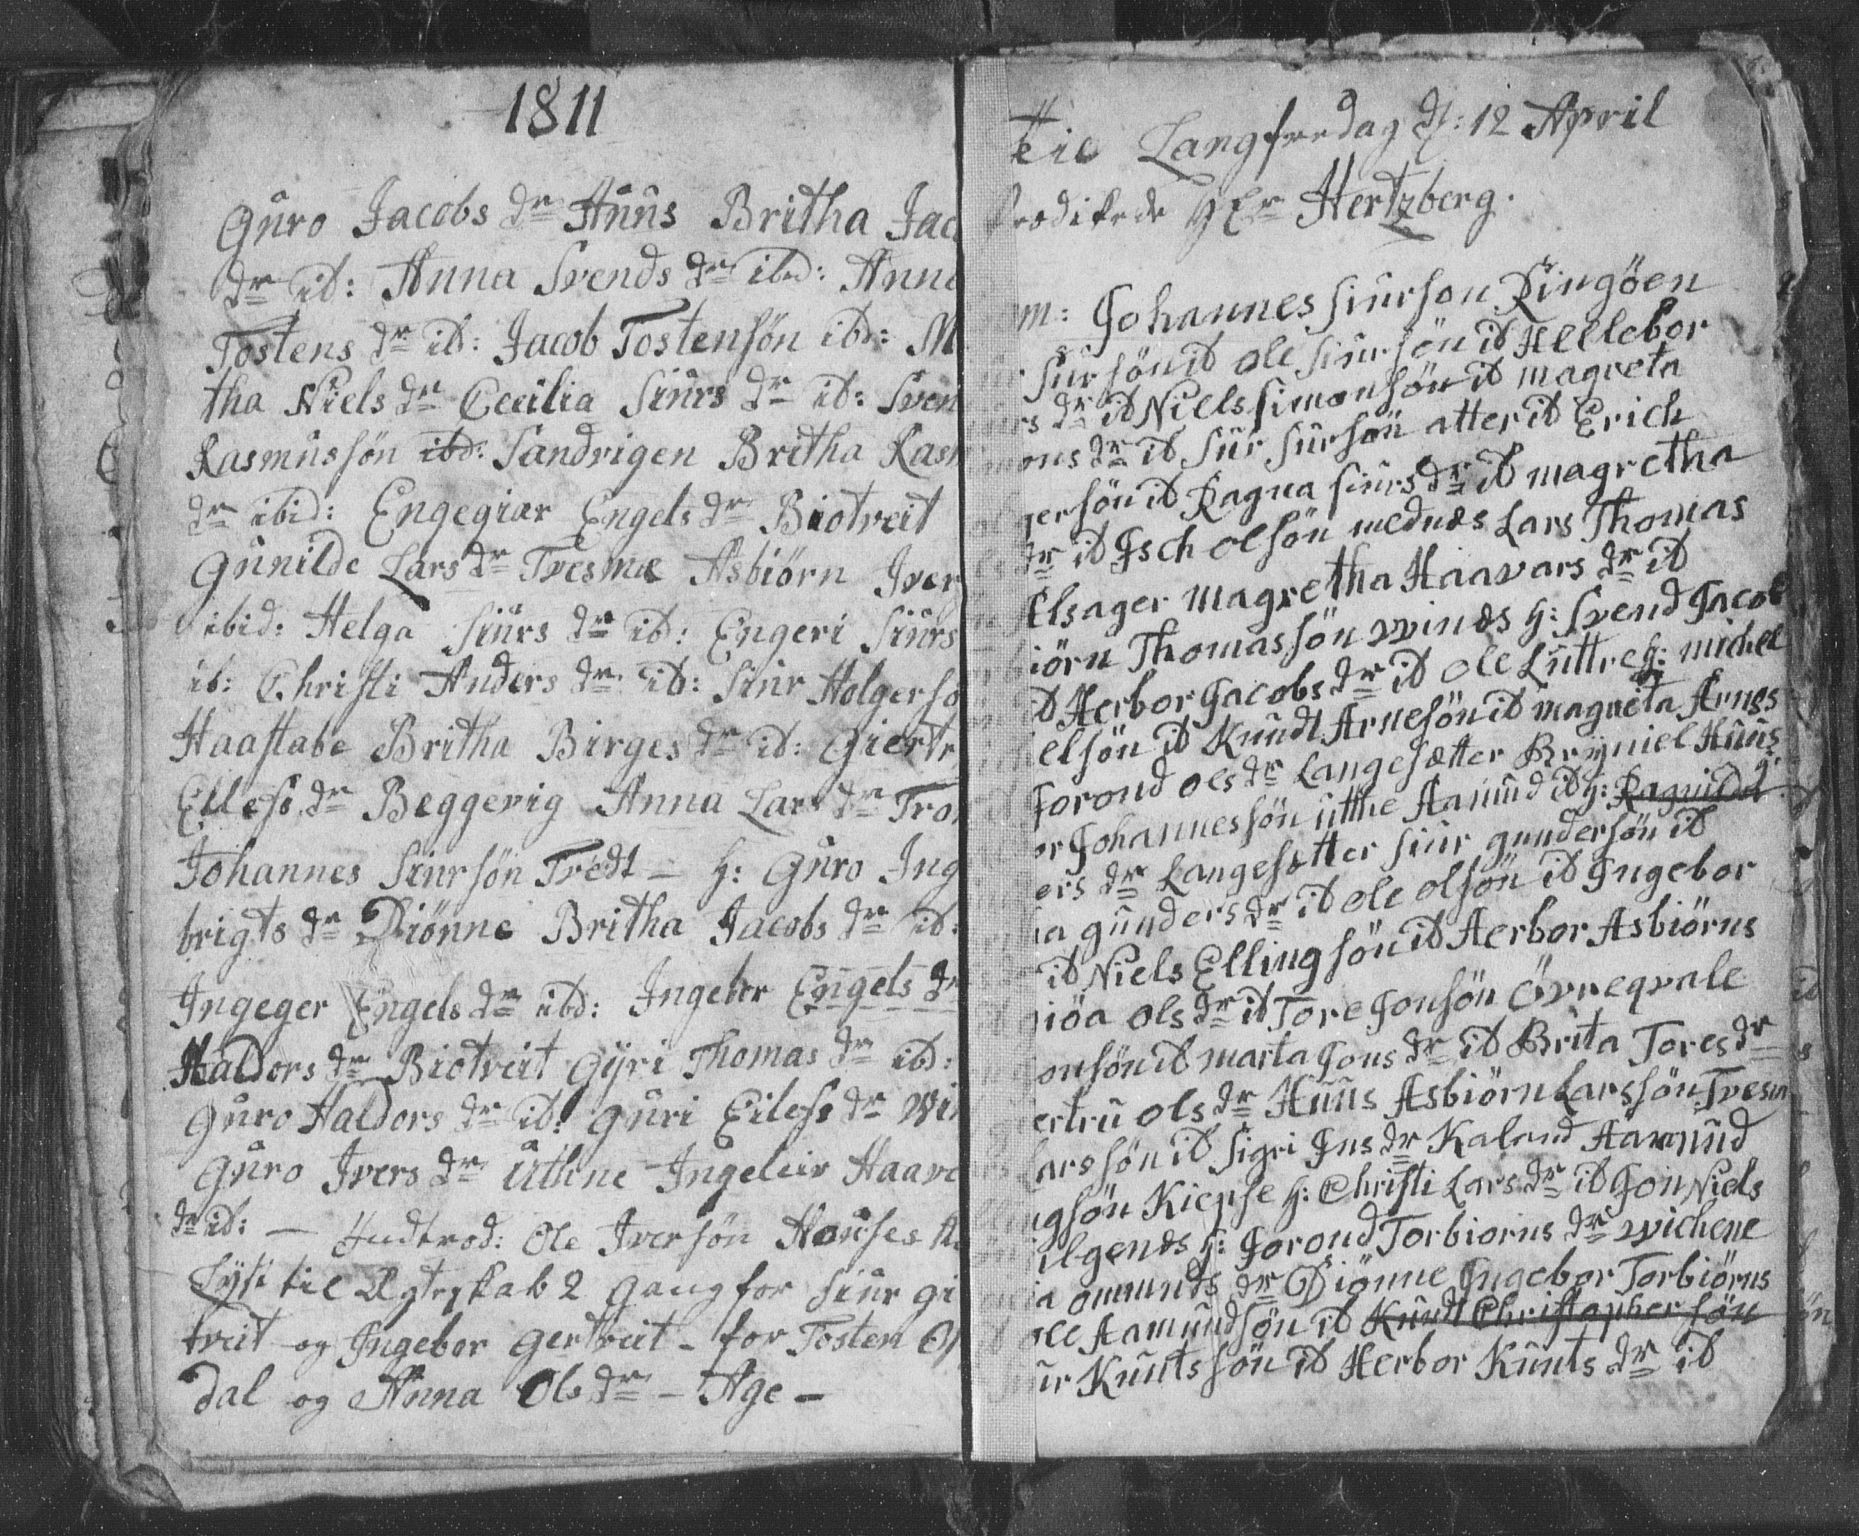 1811
Guro Jacobs dr Huus Britha Jac
dr id: Anna Svends dr ibd: Anna
Tostens dr id: Jacob Tostensøn ibd: M
tha Niels dr Cecilia Siurs dr id: Sven
Rasmussøn ibd: Sandvigen Britha Rasm
dr ibid: Engegiar Engels dr Biotveit
Gunilde Lars dr Tvesme Asbiørn Iver
ibid: Helga Siurs dr id: Engeri Siurs
id: Christi Anders dr id: Siur Holgerso
Haastabe Britha Birges dr id: Giertr
Ellefs dr Beggevig Anna Lars dr Tron
Johannes Siursøn Tredt — h: Guro Ing
brigts dr Diønne Britha Jacobs dr id:
Ingeger Engels dr ibd: Ingebor Engels dr
Haldors dr Biotveit Gyri Thomas dr ibd:
Guro Haldors dr id: Guri Eilefs dr Wi
Guro Ivers dr Uthne Ingeleiv Haav
dr id: — Undtrod: Ole Iversøn Houses
Lyst til Ægteskab 2 gang for Siur gi
treit og Ingebor Gertveit – for Tosten
dal og Anna Ols dr – Age –
Langfredag d: 12 April
Prædikede HEr Hertzberg.
m: Johannes siurson Ringöen
Sursön id ole siursön id Hellebor
rs dr id Niels simonsön id magreta
mons dr id sur sursön atter id Erich
gersön id Ragna siurs dr id magretha
dr id Isch olsön mednes Lars Thomas
Elsager magretha Haavars dr id
iörn Thomassön vvines h: svend Jacob
id Herbor Jacobs dr id ole Luttre h: michel
elsön id Knudt Arnesön id magreta Arnes
Jorond oes dr Langesætter Bryniel Huus
or Johannessön utthe Aamund id h: Ragnilda
ers dr Langesotter siur gundersön id
a gunders dr id ole olsön id Ingebor
id Niels Ellingsön id Herbor Asbiörns
iöa ols dr id Tore Jonsön Övreqvale
onsön id marta Jons dr id Brita Tores dr
ertru ols dr Huus Asbiörn Larssön Tvesm
arssön id sigri Jns dr Kaland Aamund
ngsön Kiepse h: Christi Lars dr id Jon Niels
ilgenes h: Jorond Torbiorns dr vvichene
a ommnts dr Diönne Ingebor Torbiörns
ole Aamundsön id Knudt Christaphersön
ur Knutssön id Herbor Knunts dr id